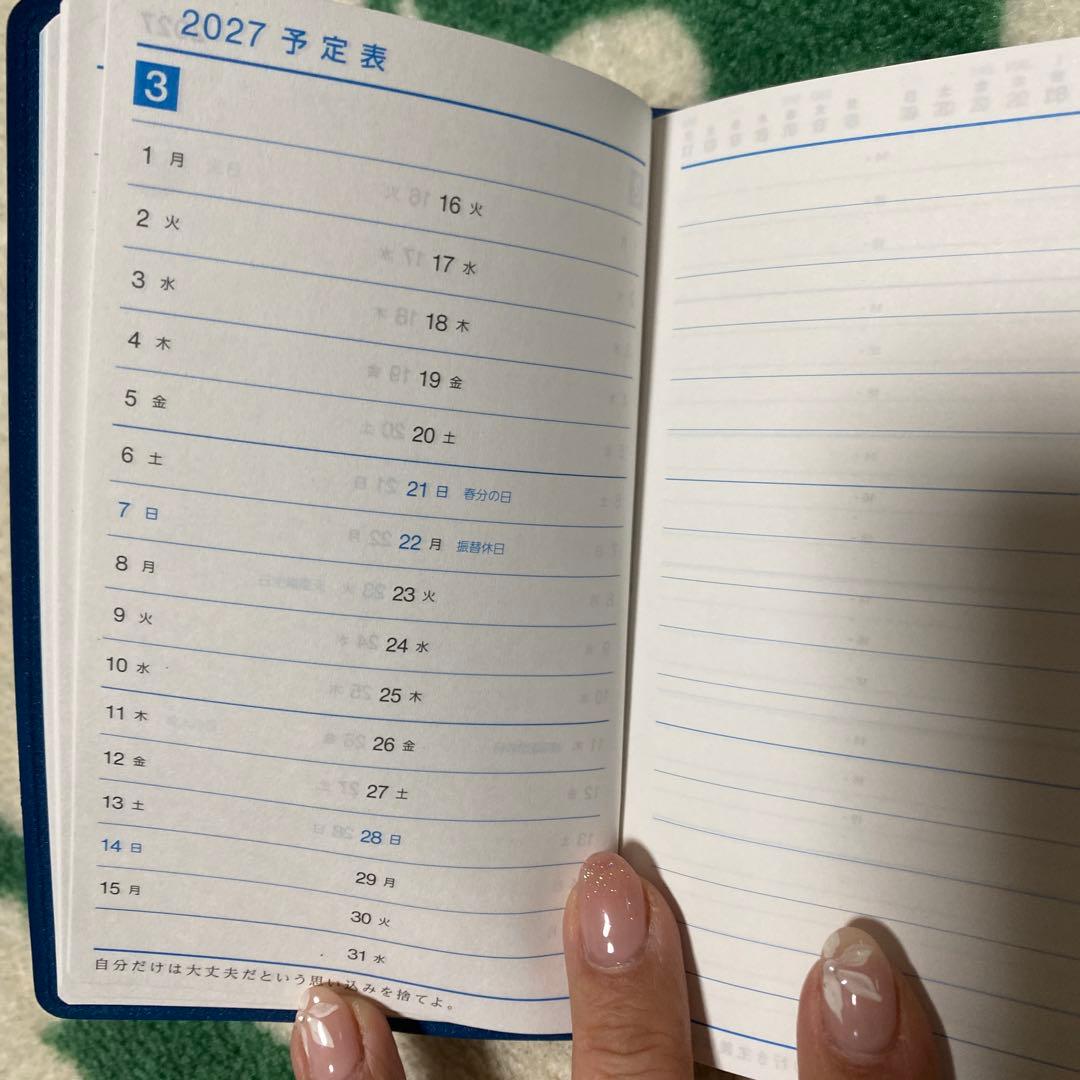 2027 予定表
3
1 月
2 火
3 水
4 木
5 金
6 土
7 日
8 月
9 火
10 水
11 木
12 金
13 土
14 日
15 月
16 火
17 水
18 木
19 金
20 土
21 日 春分の日
22 月 振替休日
23 火
24 水
25 木
26 金
27 土
28 日
29 月
30 火
31 水
自分だけは大丈夫だという思い込みを捨てよ。